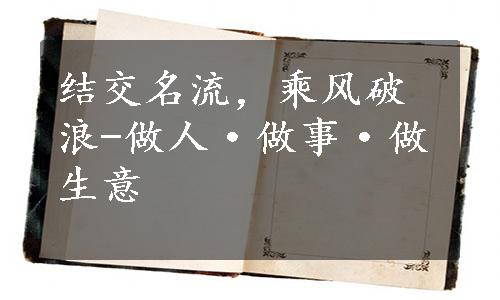 结交名流，乘风破
浪-做人·做事·做
生意